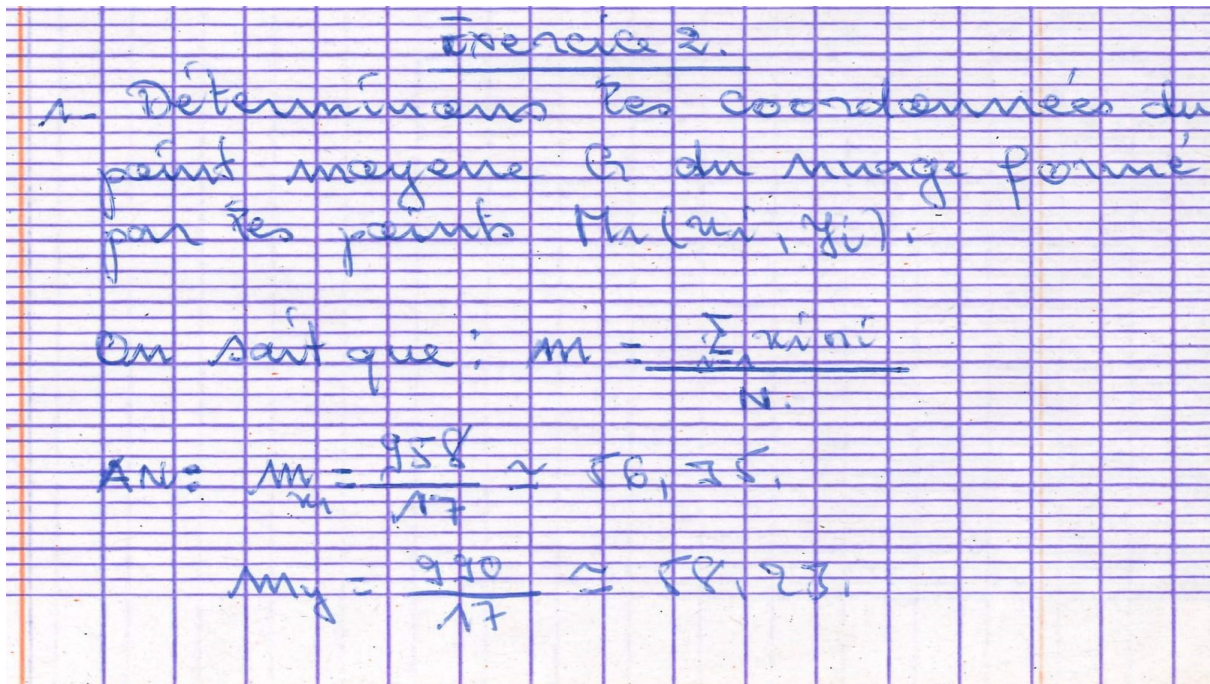 Exercice 2.
1- Déterminons les coordonnées du
point moyene G du nuage formé
par les points Mi (xi, yi).
On sait que : m = Σ i=1 xi ni / N.
AN: m xi = 958 / 17 ≃ 56,35.
my = 990 / 17 ≃ 58,23.